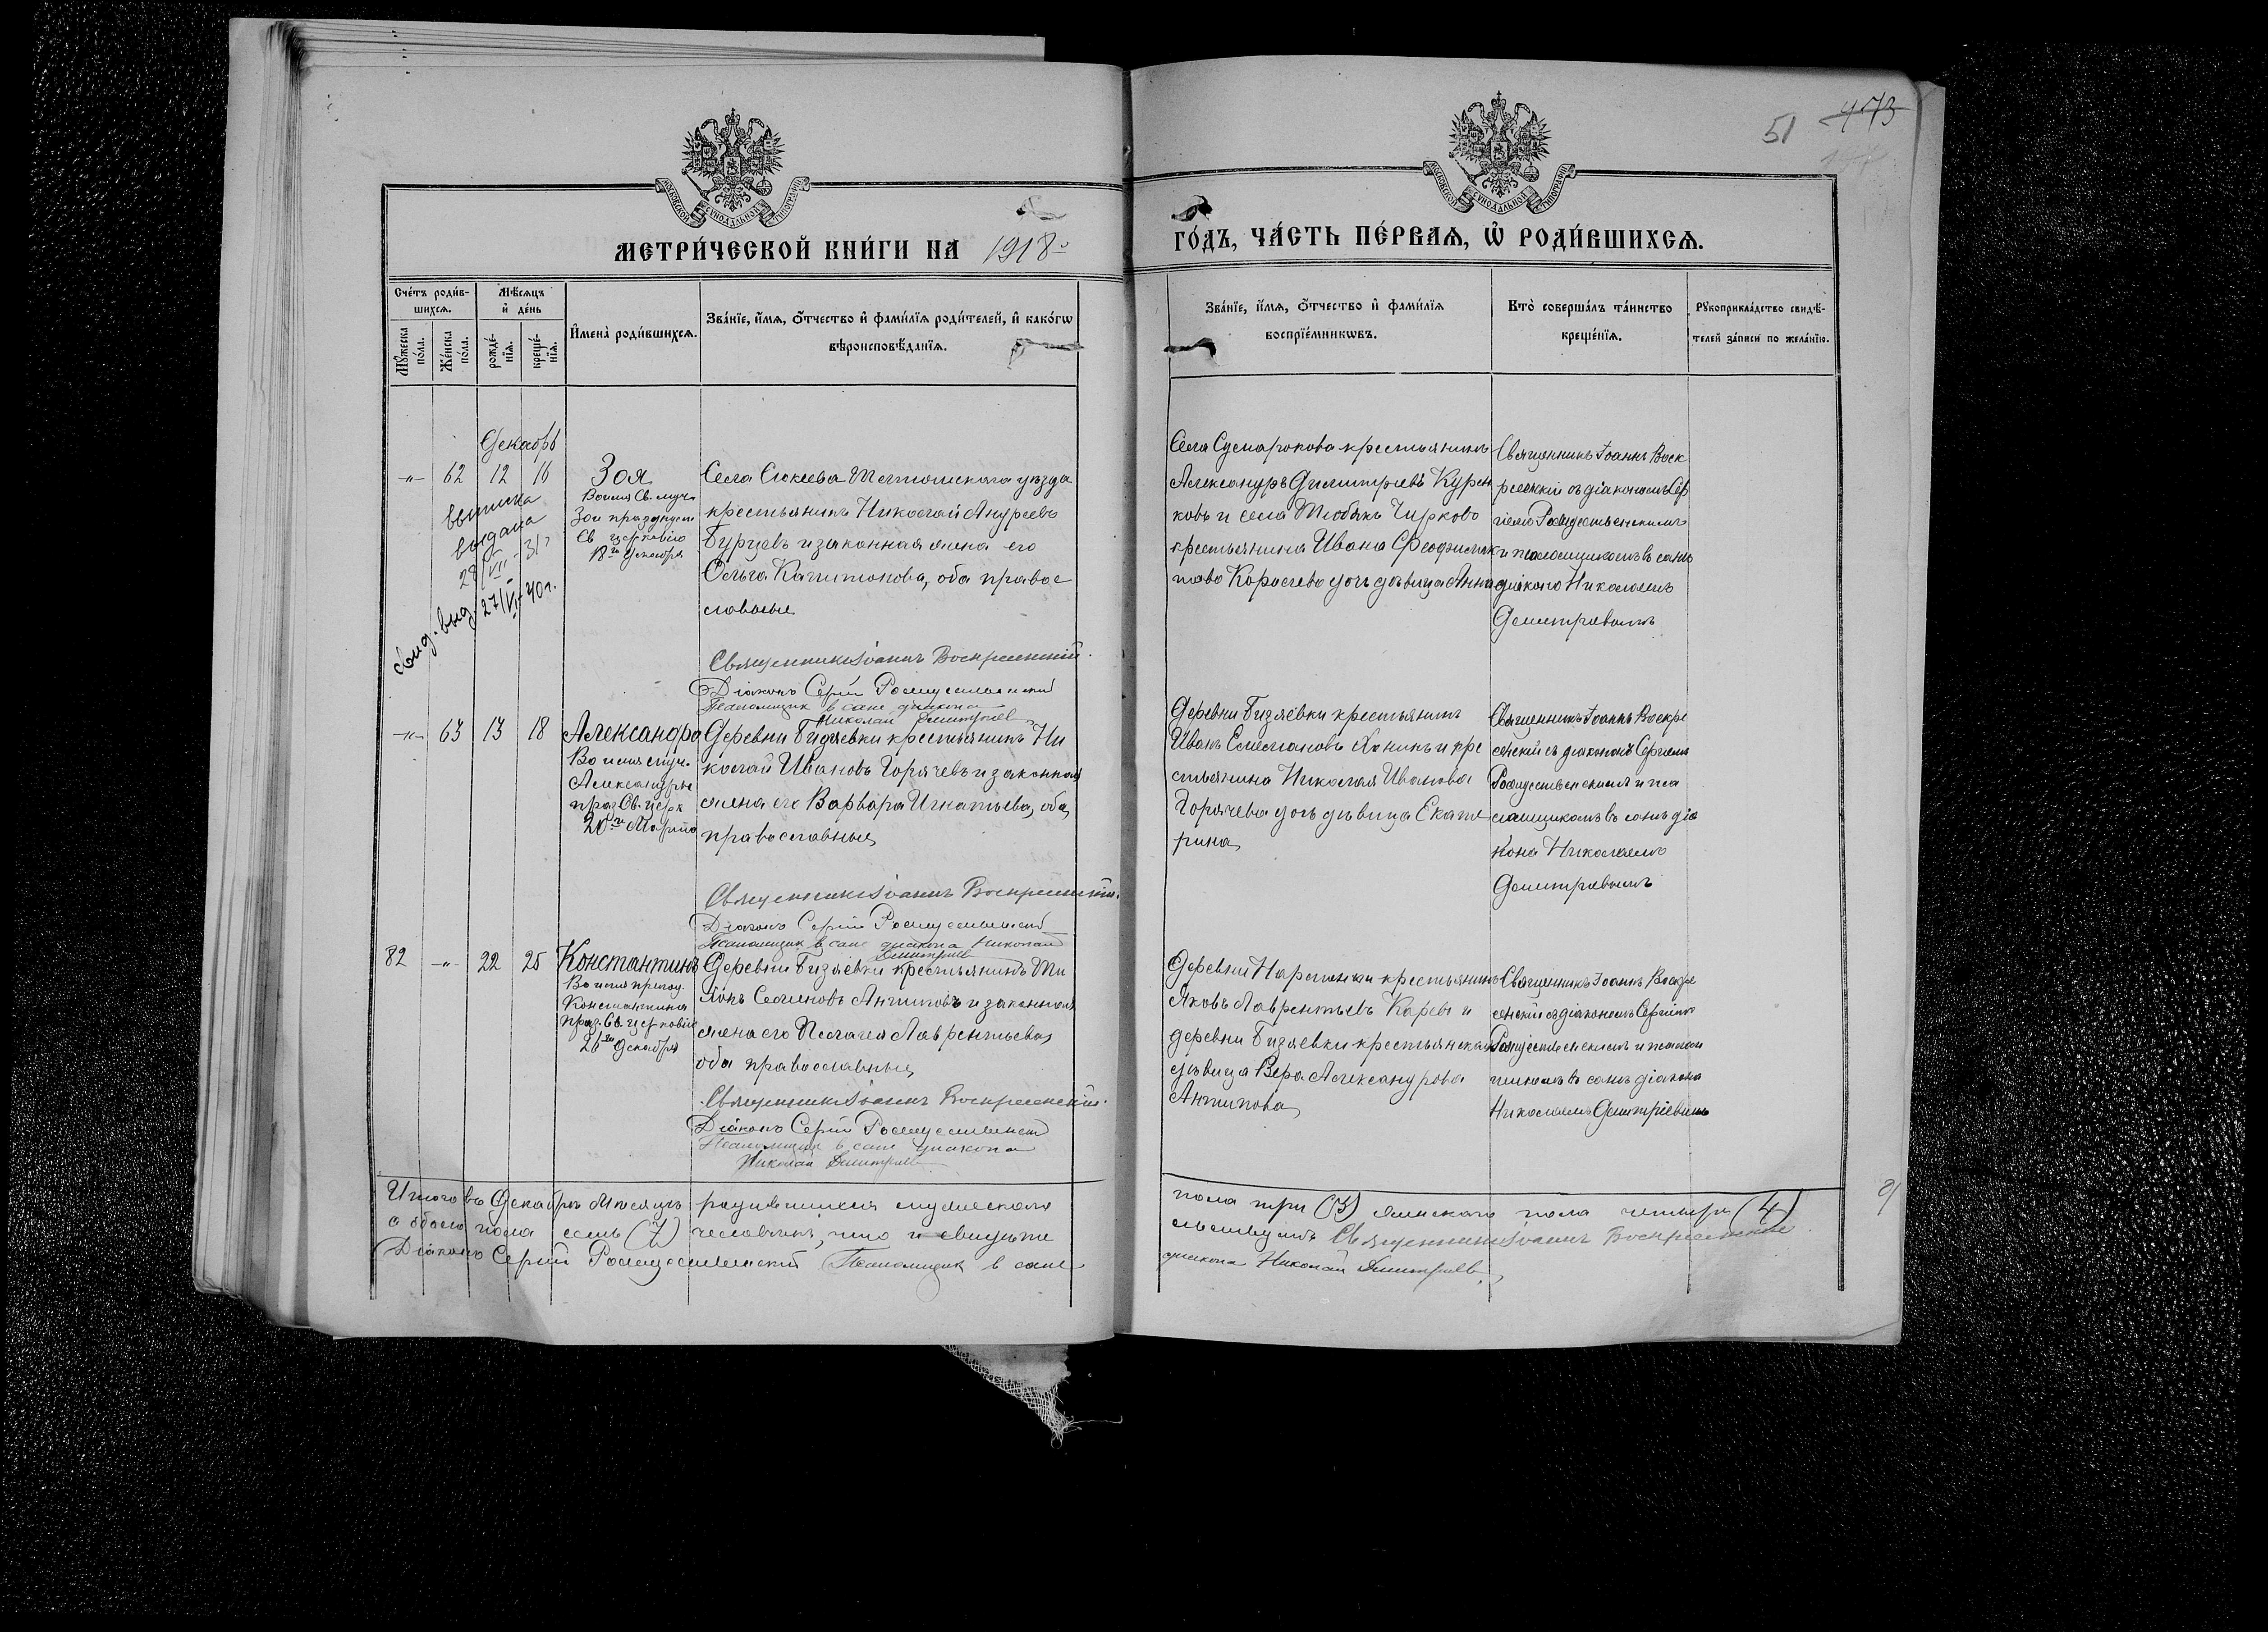 51 473
МОСКОВСКОЙ СѴНОДАЛЬНОЙ ТИПОГРАФІИ
МОСКОВСКОЙ СѴНОДАЛЬНОЙ ТИПОГРАФІИ
МЕТРИ́ЧЕСКОЙ КНИ́ГИ НА 1918
ГО́ДЪ, ЧА́СТЬ ПЕ́РВАѦ, Ѡ҆ РОДИ́ВШИХСѦ.
Сче́тъ роди́в-
шихсѧ.
Мѣ́сѧцъ
и҆ де́нь
Мꙋ́жеска
по́ла.
Же́нска
по́ла.
рожде́-
нїѧ.
креще́-
нїѧ.
И҆мена̀ роди́вшихсѧ.
Зва́нїе, и҆́мѧ, ѻ҆́тчество и҆ фами́лїѧ роди́телей, и҆ како́гѡ
вѣроисповѣ́данїѧ.
Зва́нїе, и҆́мѧ, ѻ҆́тчество и҆ фами́лїѧ
воспрїе́мникѡвъ.
Кто̀ соверша́лъ та́инство
креще́нїѧ.
Рꙋкоприкла́дство свидѣ́-
телей за́писи по жела́нїю.
Декабрь
-"- 62 12 16
Зоя
Во имя Св. муч.
Зои празднуем
Св церковію
18го декабря
выписка
выдана
28/VII-31г
свид. выд. 27/VI-40г.
Села Сюкеева Тетюшскаго уѣзда
крестьянинъ Николай Андреевъ
Бурцевъ и законная жена его
Ольга Капитонова, оба право
славные
Священникъ Іоаннъ Воскресенскій.
Діаконъ Сергій Рождественскій
Псаломщик в сане диакона
Николай Димитриев
Села Сумарокова крестьянинъ
Александръ Димитріевъ Курен
ковъ и села Чирково
крестьянина Ивана
дочь дѣвица Анна
Священникъ Іоаннъ Воск
ресенскій съ діакономъ Сер
гіемъ Рождественскимъ
и псаломщикомъ въ санѣ
діакона Николаемъ
Димитріевымъ
-"- 63 13 18
Александра
Во имя муч.
Александры
праз. Св. церк
20го Марта
Деревни Бизяевки крестьянинъ Ни
колай Ивановъ Горячевъ и законная
жена его Варвара Игнатьева, оба
православные
Священникъ Іоаннъ Воскресенскій.
Діаконъ Сергій Рождественскій
Псаломщик в сане диакона Николай
Димитриев
Деревни Бизяевки крестьянинъ
Иванъ Емельяновъ и кре
стьянина Николая Иванова
Горячева дочь дѣвица Екате
рина
Священникъ Іоаннъ Воскре
сенскій съ діакономъ Сергіемъ
Рождественскимъ и пса
ломщикомъ въ санѣ діа
кона Николаемъ
Димитріевымъ
82 -"- 22 25
Константинъ
Во имя препод.
Константина
праз. Св. церковію
26го декабря
Деревни Бизяевки крестьянинъ
Семеновъ Антиповъ и законная
жена его Пелагея Лаврентьева
оба православные
Священникъ Іоаннъ Воскресенскій.
Діаконъ Сергій Рождественскій
Псаломщик в сане диакона
Николай Димитриев
Деревни крестьянинъ
Яковъ Лаврентьевъ Каревъ и
деревни Бизяевки крестьянская
дѣвица Вера Александрова
Антипова
Священникъ Іоаннъ Воскре
сенскій съ діакономъ Сергіемъ
Рождественскимъ и псалом
щикомъ въ санѣ діакона
Николаемъ Димитріевымъ
Итого въ Декабрѣ мѣсяцѣ родившихся мужескаго
пола три (3) женскаго пола четыре (4)
а обоего пола семь (7) человѣкъ, что и свидѣте
льствуютъ Священникъ Іоаннъ Воскресенскій
Діаконъ Сергій Рождественскій Псаломщик в сане
диакона Николай Димитриев